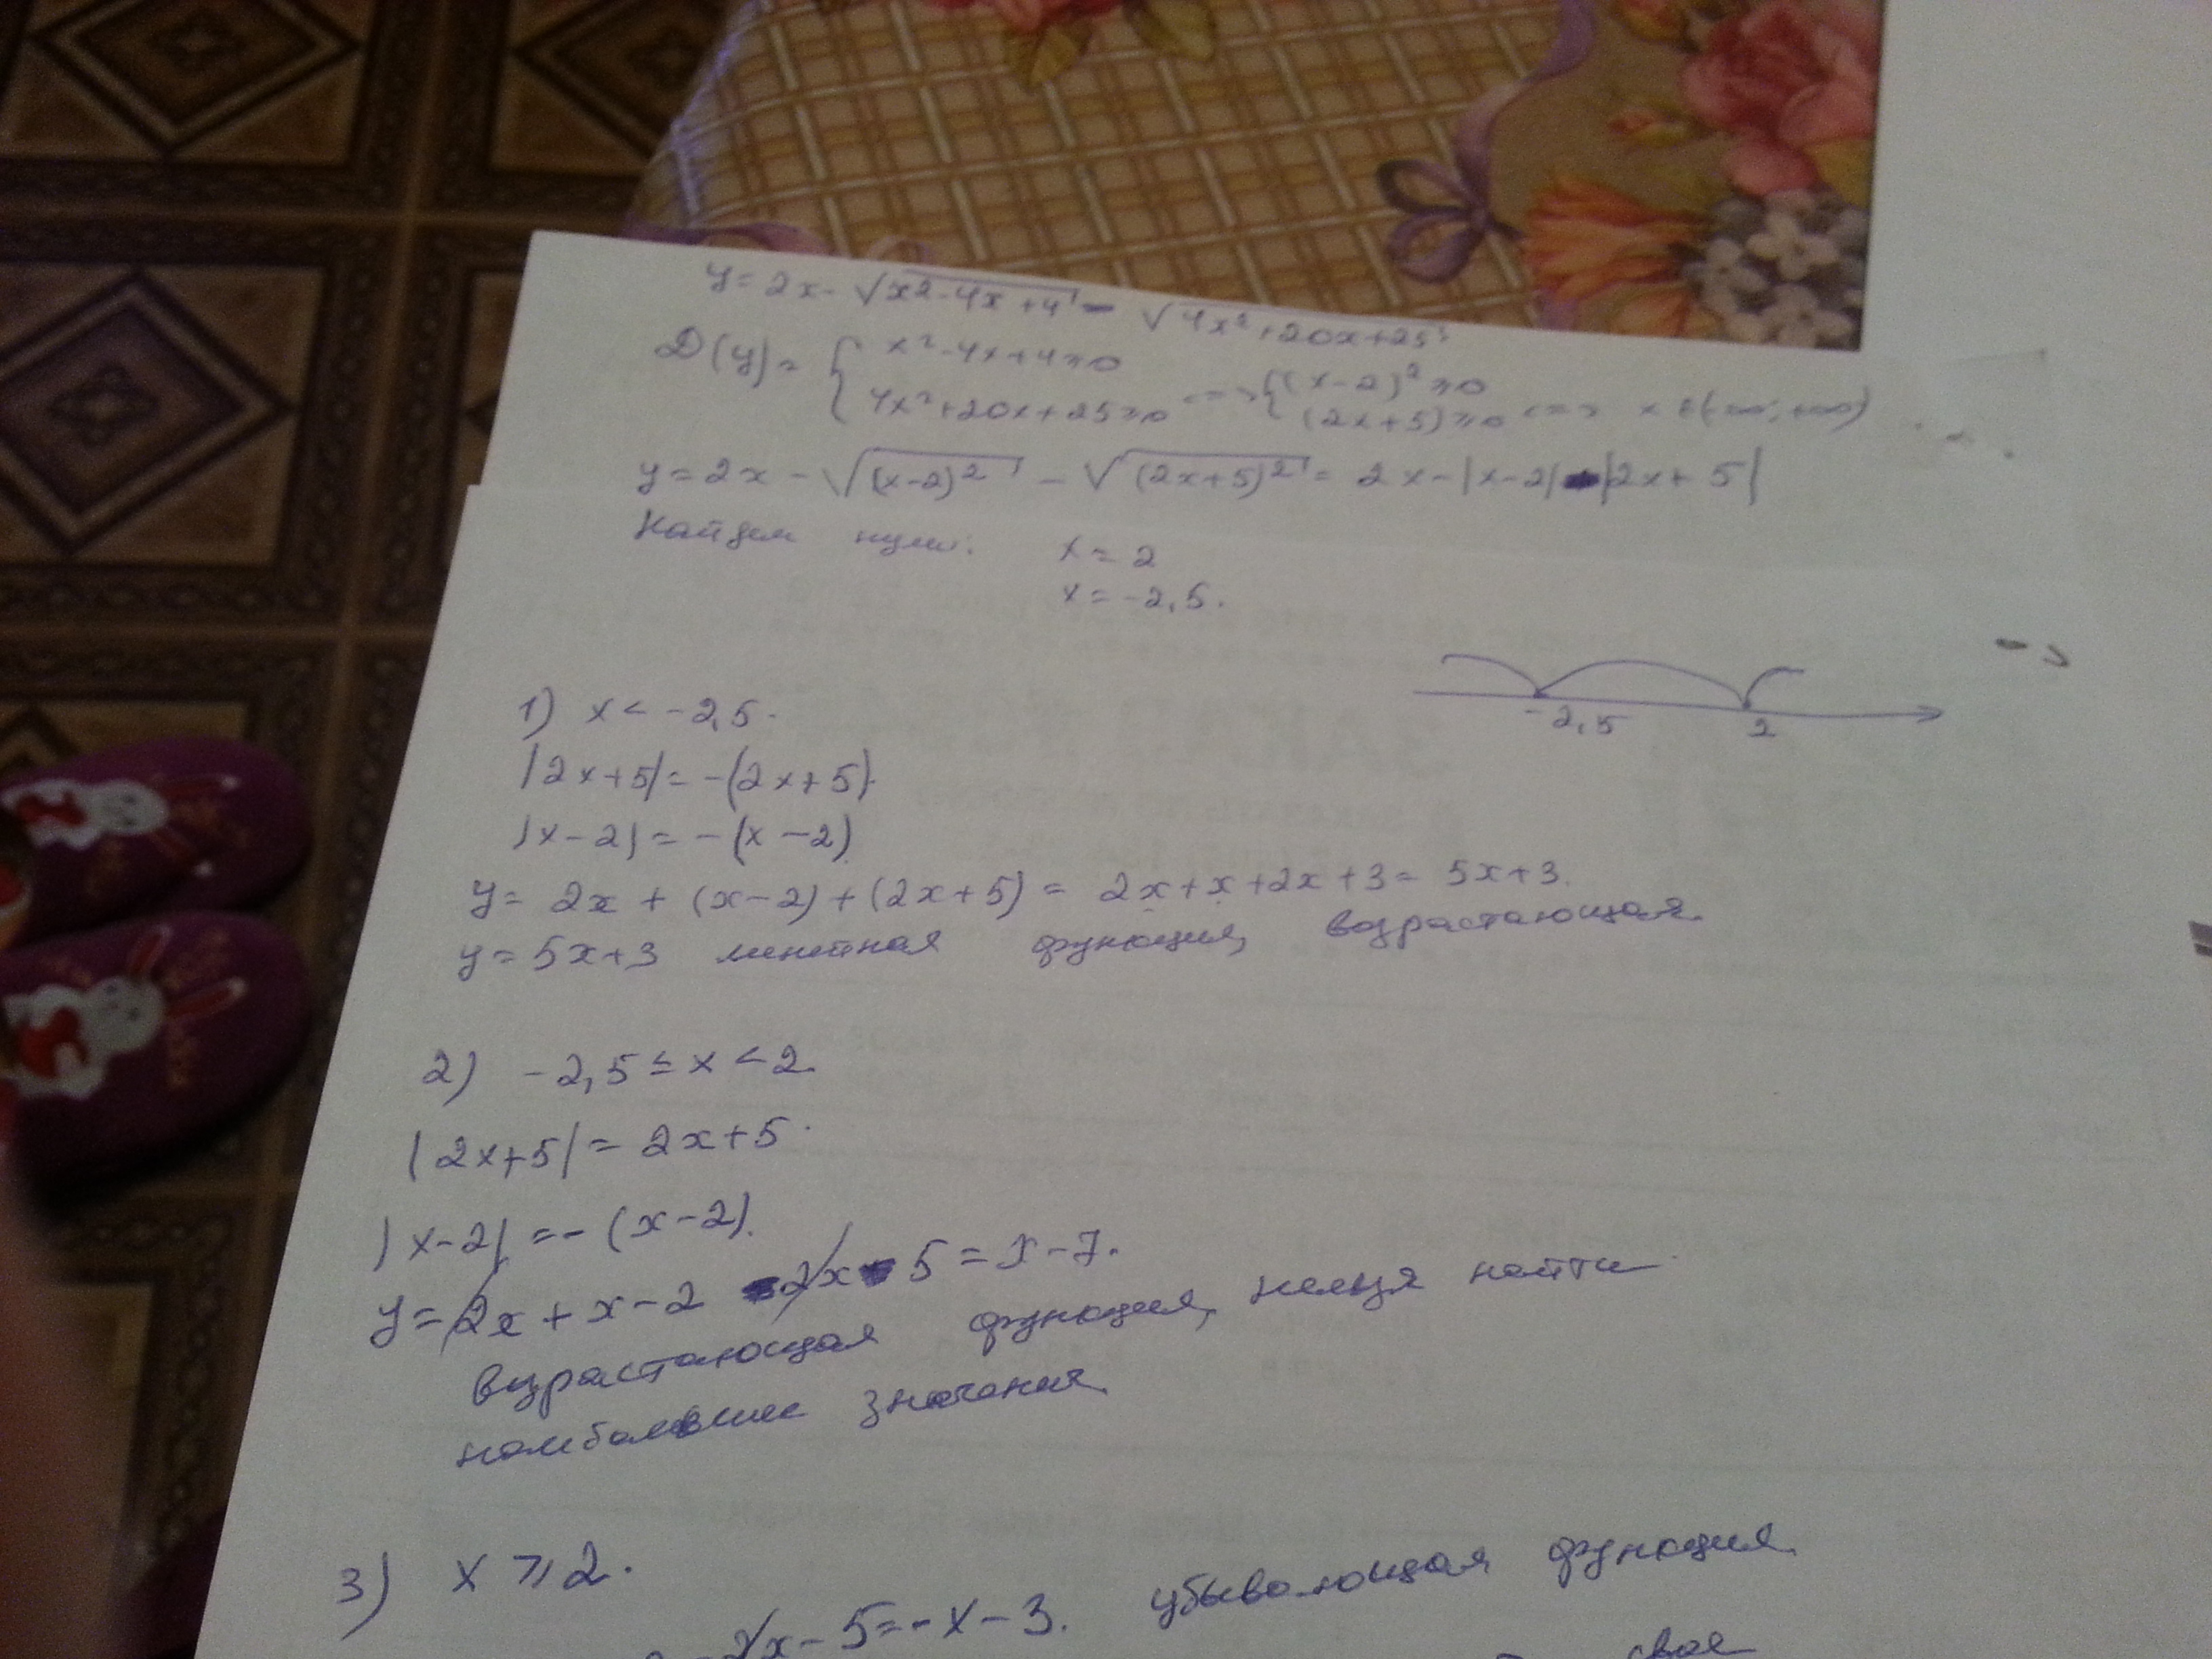 y = 2x - √(x² - 4x + 4) - √(4x² + 20x + 25)
D(y) = { x² - 4x + 4 ≥ 0
4x² + 20x + 25 ≥ 0 <=> { (x-2)² ≥ 0
(2x+5) ≥ 0 <=> x ∈ (-∞; +∞)
y = 2x - √((x-2)²) - √((2x+5)²) = 2x - |x-2| - |2x+5|
Найдем нули: x = 2
x = -2,5.
-2,5 2
1) x < -2,5.
|2x+5| = -(2x+5).
|x-2| = -(x-2)
y = 2x + (x-2) + (2x+5) = 2x + x + 2x + 3 = 5x+3.
y = 5x+3 линейная функция, возрастающая.
2) -2,5 ≤ x < 2.
|2x+5| = 2x+5.
|x-2| = -(x-2).
y = 2x + x - 2 - 2x - 5 = x - 7.
возрастающая функция, нельзя найти
наибольшее значения
3) x ≥ 2.
2x - 5 = -x - 3. убывающая функция.
свое